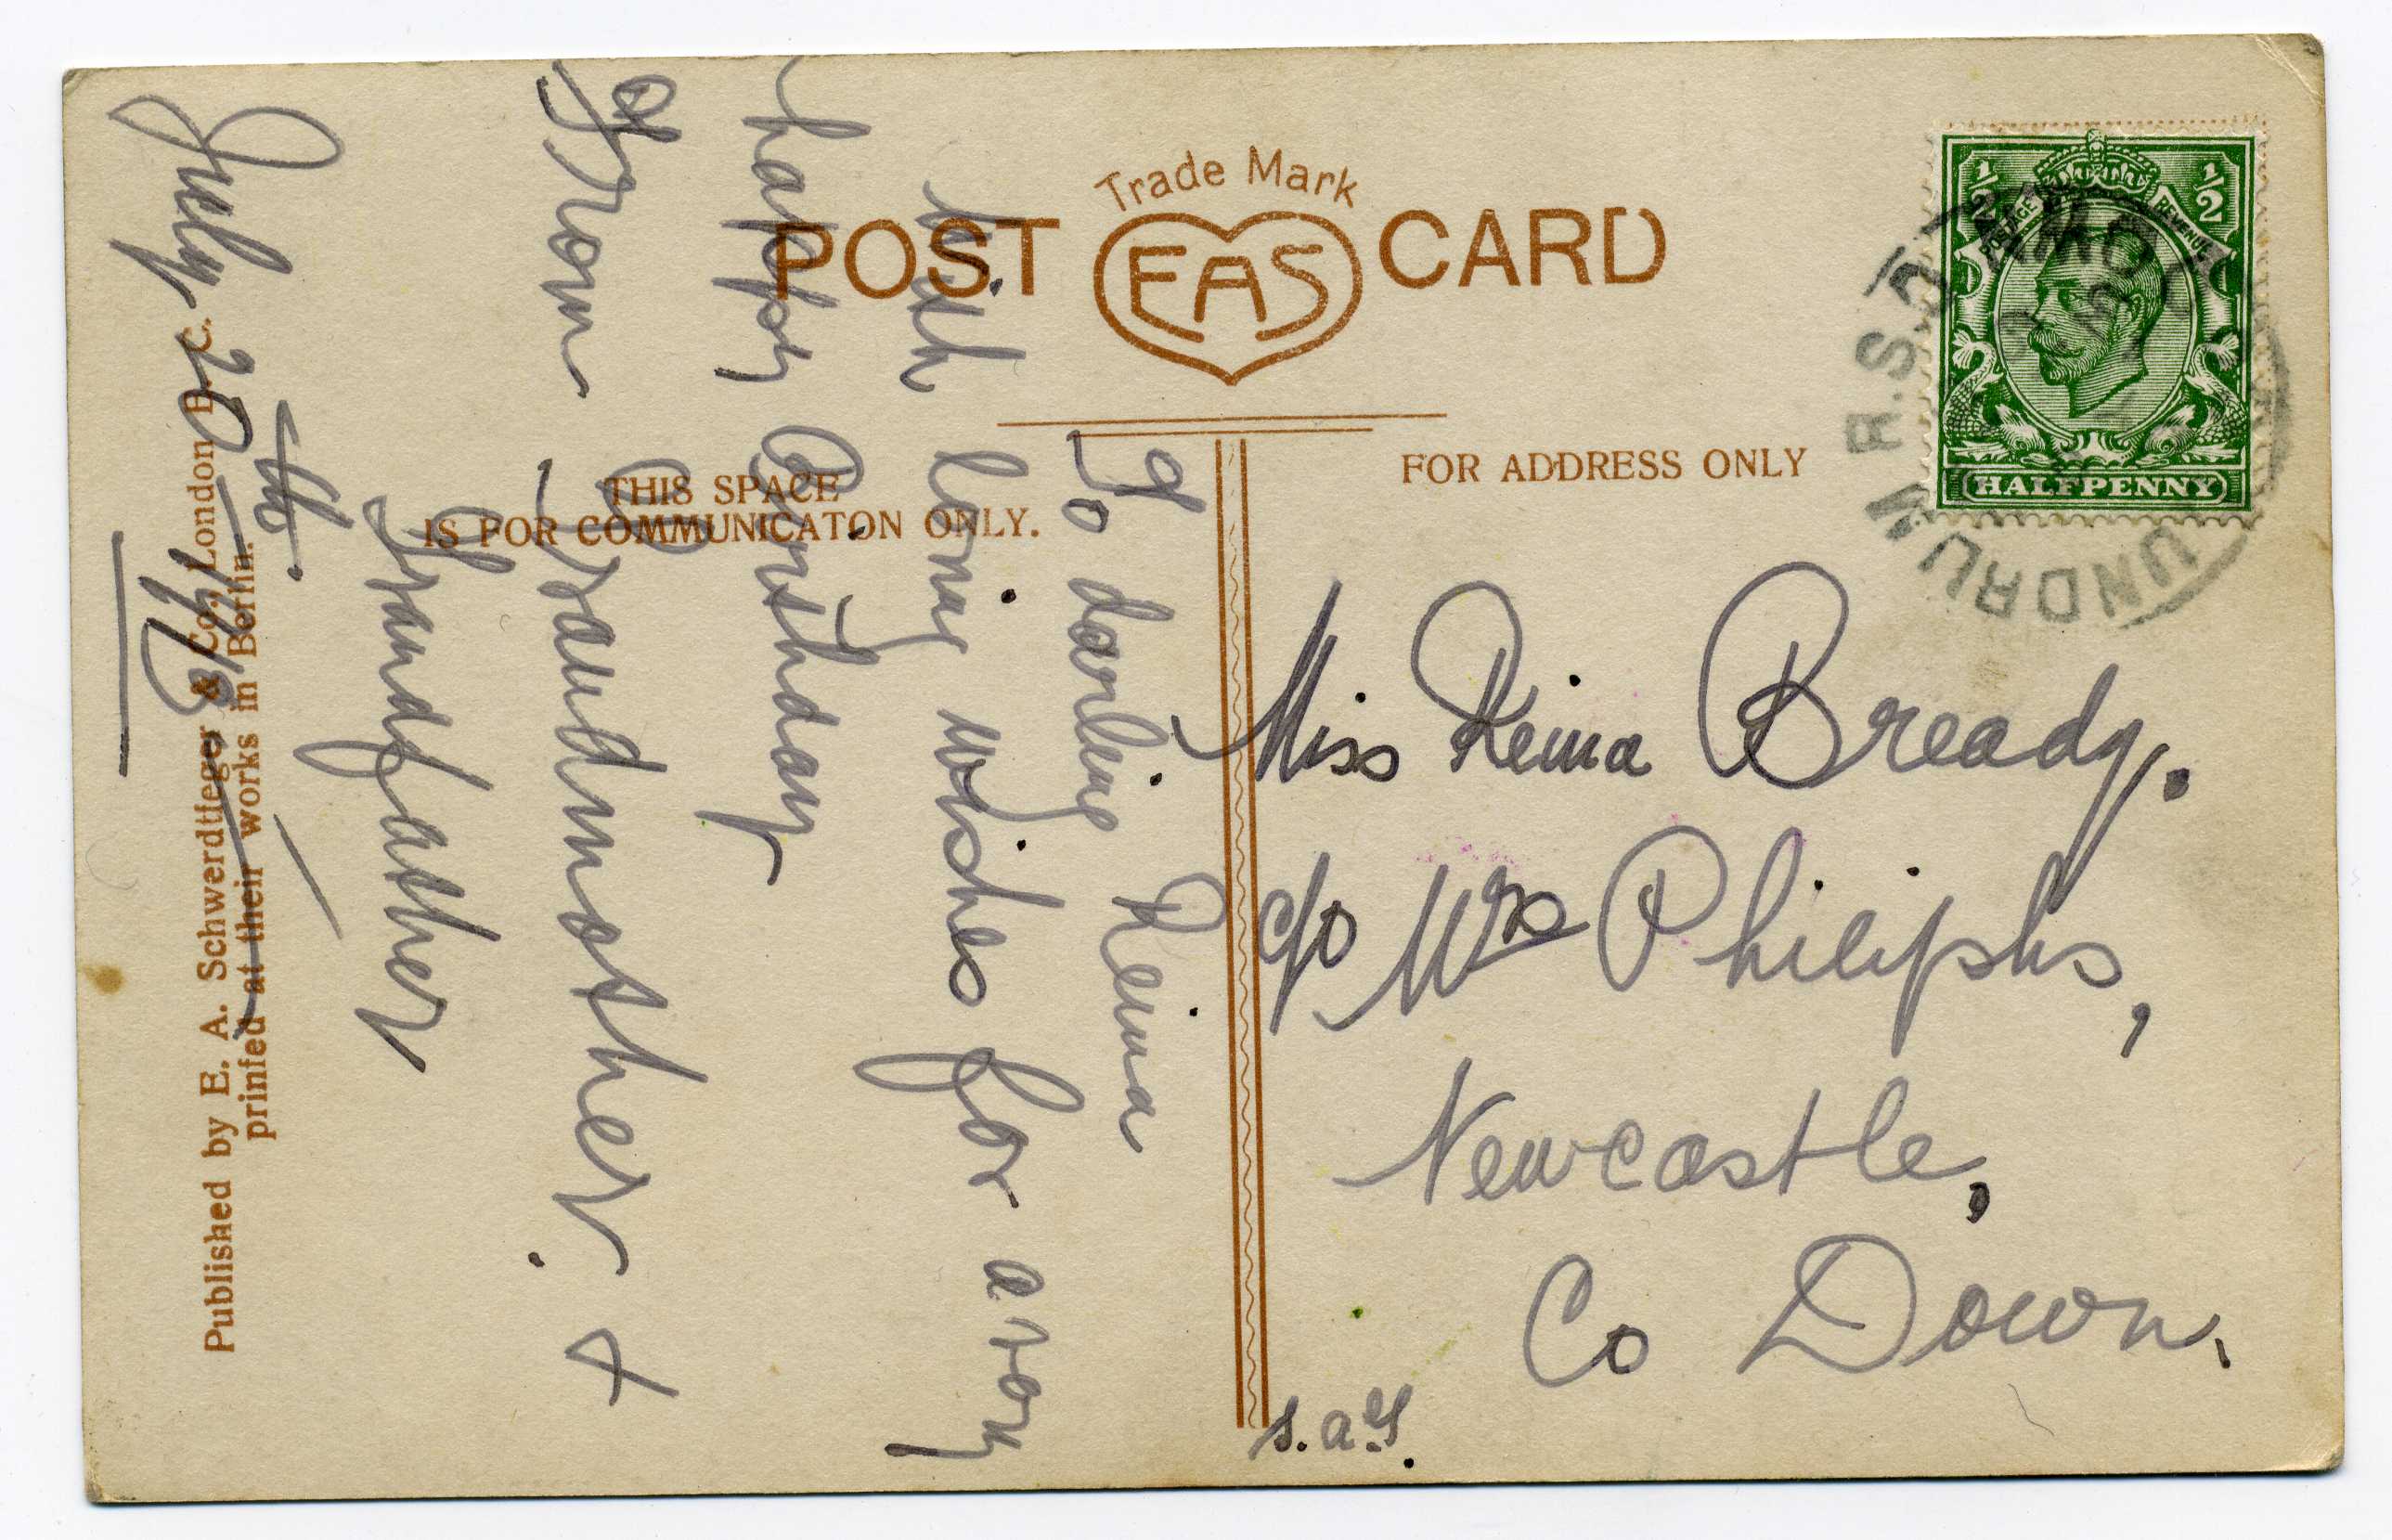 Trade Mark
POST EAS CARD
THIS SPACE
IS FOR COMMUNICATON ONLY.
FOR ADDRESS ONLY
1/2 1/2
POSTAGE REVENUE
HALFPENNY
UNDRUM R.S.O.
To darling Reina
With loving wishes for a very
happy Birthday
From Grandmother &
Grandfather
July 20th. 1913
Miss Reina Bready.
c/o Mrs Philiphs,
Newcastle,
Co Down.
Published by E. A. Schwerdtfeger & Co., London E. C.
printed at their works in Berlin.